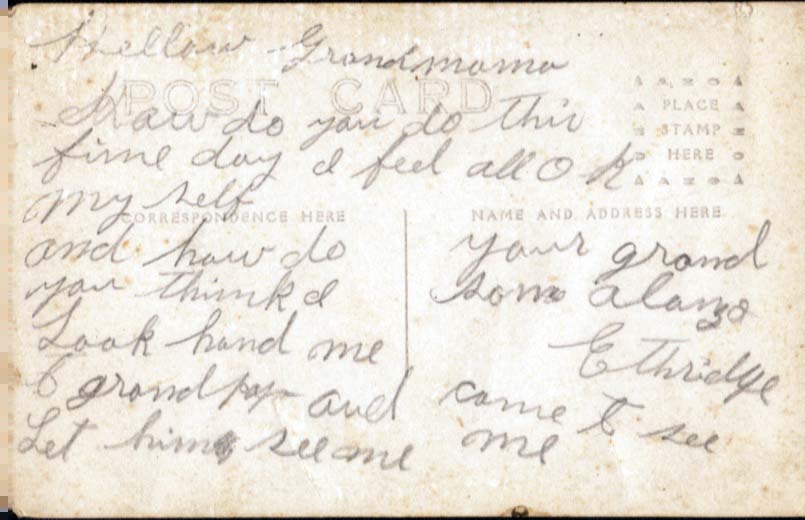 Hellow Grandmama
POST CARD
How do you do this
fime day I feel all O K
my self
PLACE
STAMP
HERE
CORRESPONDENCE HERE
and how do
you think I
Look hand me
to grandpap and
Let him see me
NAME AND ADDRESS HERE
your grand
son Alanzo
Ethridge
come to see
me